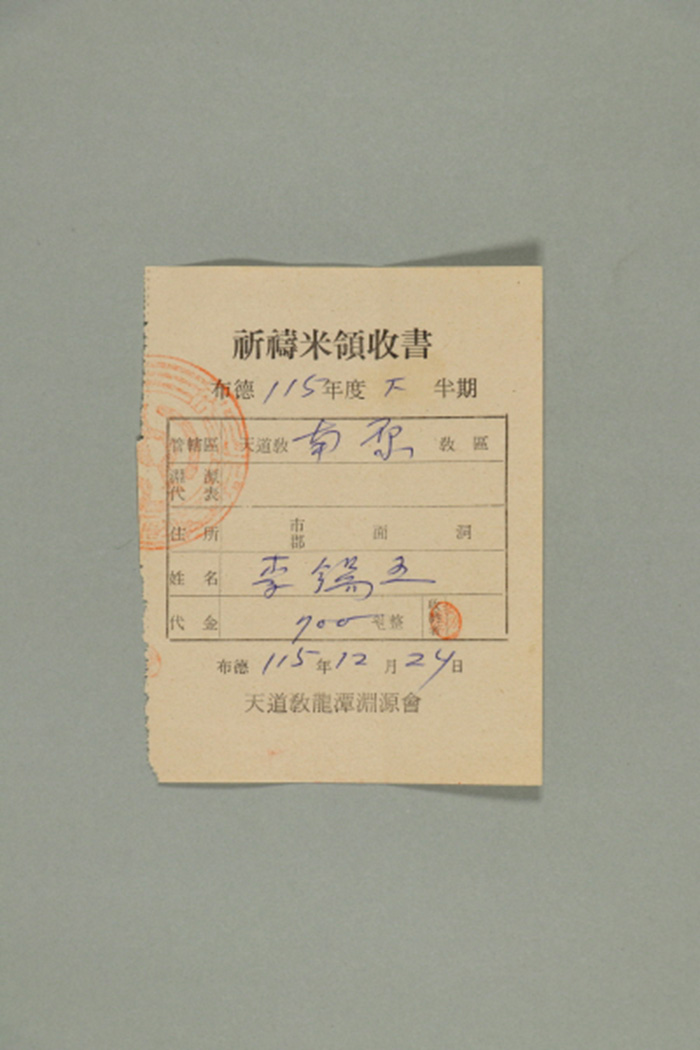 祈禱米領收書
布德 115年度 下 半期
管轄區 天道敎 南原 敎區
淵源代表
住所 市郡 面 洞
姓名 李錫五
代金 700 整
布德 115年12月24日
天道敎龍潭淵源會